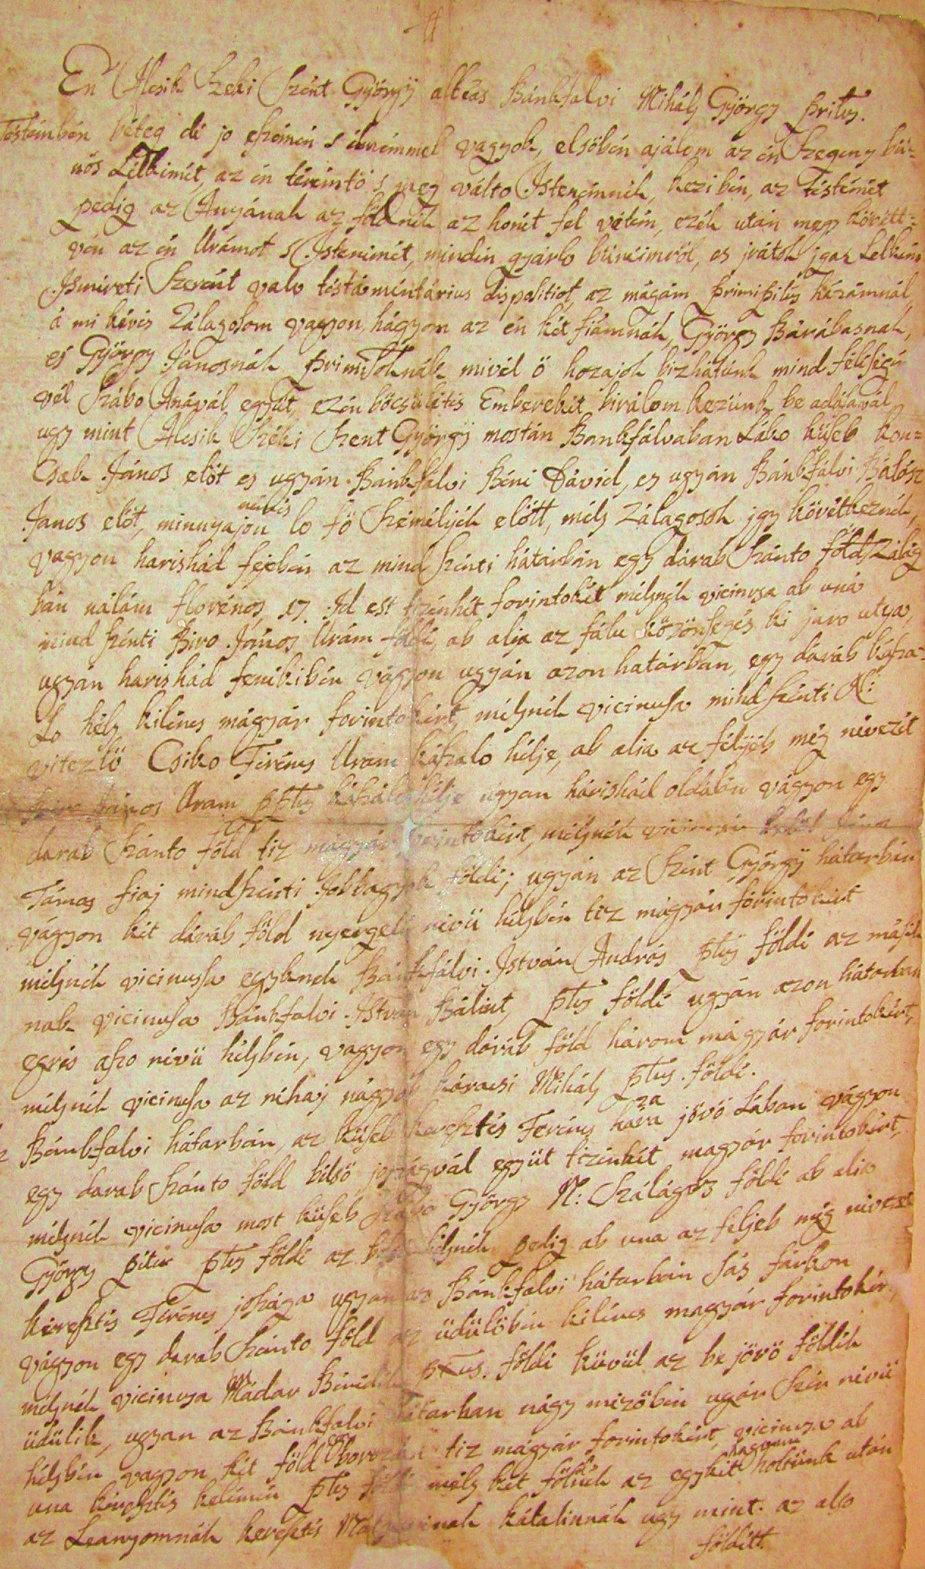 En Alcsik Szeki Szent Györgÿ alias Bánkfalvi Mihály György Pritus.
Testemben béteg de jo eszemen s elmémmel vagyok, elsöben ajálom az én Szegeny bü=
nös Lelkemet, az én teremtö s meg válto Istenemnek, kezeiben, az Testemet
pedig az Anyának az földnek az honét fel vétem, ezek után meg követt=
vén az én Urámot s Istenemet, minden gyarlo büneimröl, es irátok igaz Lelkem
Ismereti Szerént valo testámentárius dispositiot, az mágám primipilus házámnál,
á mi kévés Zálagosom vagyon, hágyom az én két fiámnák, György Bárábasnak,
es György Jánosnák Primipiloknak mivel ö hozajok bizhátunk mind feleségem
vél Szábo Anávál együt, ezen böcsületes Emberekét birálom kezünk be adásával
ugy mint Alcsik Széki Szent Györgÿ mostán Bankfálvában Láko küseb Kon=
cseb János elöt es ugyán Bánkfalvi Béne Dávid, es ugyán Bánkfalvi Bálás
Janos elöt, minnyajon nemes lo fö Szemelyek elött, mely Zálagosok igy követkéznek,
vagyon harishád fejeben az mind szenti hátárbán egy darab Szánto föld Zálág
bán nálám florénos 17. Id est tizenhét forintokét melynek vicinussa ab una
mind szénti Biro János Urám földe, ab alia az fálu közönséges ki jaro utya,
ugyan harishád fenekiben vágyon ugyán azon határban, egy dáráb kászá=
lo hely kilencz mágyár forintokért, melynek vicinussa mind szenti N:
vitezlö Csiko Ferencz Uram kászalo helje, ab alia az feljeb még nevezét
Biro János Uram ptus kászálo helje ugyan hárishád oldálán vágyon egy
darab Szánto föld tiz magyár forintokért, melynek vicinussa
Támas fiaj mindszénti Jobbagyok földe; ugyán az Szént Györgÿ hátárbán
vágyon két dáráb föld nyerges nevü heljben tiz mágyár forintokért
melynek vicinussa egyknek Bánkfálvi István András ptus földe az másik
nak vicinussa Bánkfalvi István Bálint ptus földe ugyán azon hátárban
egres aszo nevü heljben, vagyon egy dáráb föld három mágyár forintokért,
melynek vicinussa az néhaj nágyob károcsi Mihály ptus. földe.
Bánkfalvi hátárbán, az küseb keresztes Ferencz hára jövö Lában vágyon
egy darab Szánto föld belsö joszágvál együt tizenhét magyár forintokért,
melynek vicinussa most küseb Szabo György N: Szálágos földe ab alia
György Péter ptus földe az belsö heljnek pedig ab una az feljeb még nevezet
keresztes Ferencz joszága ugyan az Bánkfalvi hátárbán Sás fárkon
vágyon egy darab Szánto föld az üdülöben kilencz magyár forintokér,
melynek vicinussa Mádar Benedek ptus. földe küvül az be jövö földek
üdülik, ugyan az Bánkfalvi hátárban nágy mezöben ugár szer nevü
heljben vagyon két föld tiz mágyár forintokért vicinussa ab
una keresztes kelemen ptus földe mely két földnek az egykét hagyom holtunk után
az Leanyomnák keresztes kátalinnák ugy mint az also
földétt.